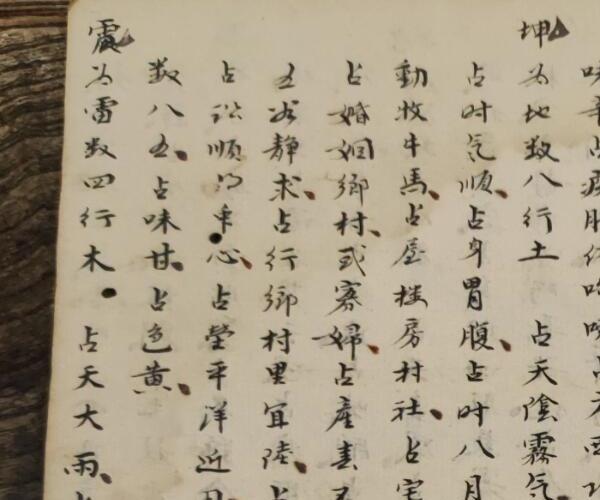 味辛占疾肺
坤为地数八行土 占天陰霧气
占时气順占身胃腹占时八月
動牧牛馬占屋楼房村社占宅
占婚姻鄉村或寡婦占產喜
静求占行鄉村里宜陸占
占訟順 心占塋平洋近
数八五占味甘占色黄
震为雷数四行木 占天大雨